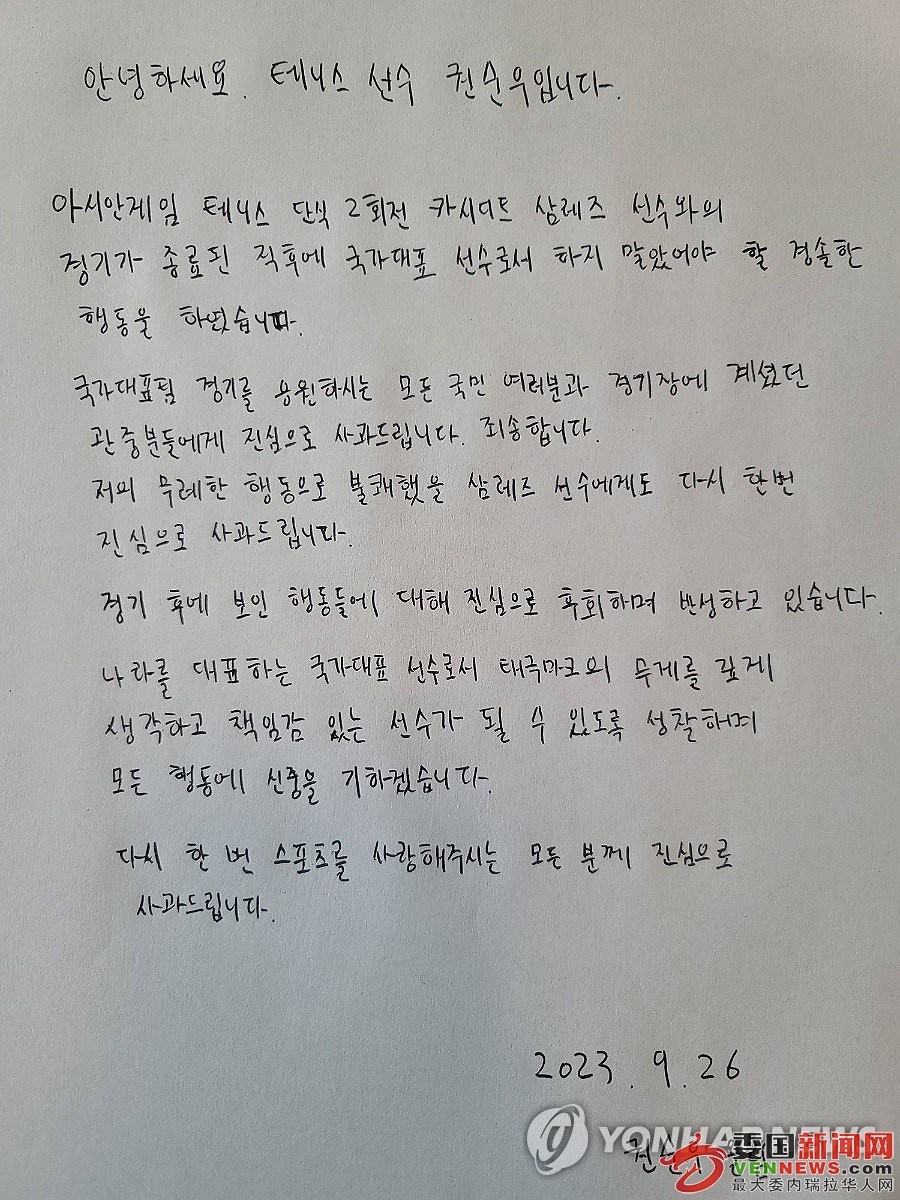 안녕하세요. 테니스 선수 권순우입니다.
아시안게임 테니스 단식 2회전 카시디트 삼레즈 선수와의
경기가 종료된 직후에 국가대표 선수로서 하지 말았어야 할 경솔한
행동을 하였습니다.
국가대표팀 경기를 응원하시는 모든 국민 여러분과 경기장에 계셨던
관중분들에게 진심으로 사과드립니다. 죄송합니다.
저의 무례한 행동으로 불쾌했을 삼레즈 선수에게도 다시 한번
진심으로 사과드립니다.
경기 후에 보인 행동들에 대해 진심으로 후회하며 반성하고 있습니다.
나라를 대표하는 국가대표 선수로서 태극마크의 무게를 깊게
생각하고 책임감 있는 선수가 될 수 있도록 성찰하며
모든 행동에 신중을 기하겠습니다.
다시 한 번 스포츠를 사랑해주시는 모든 분께 진심으로
사과드립니다.
2023. 9. 26
YONHAPNEWS
권순우
委国新闻网
VENNEWS.com
最大委内瑞拉华人网